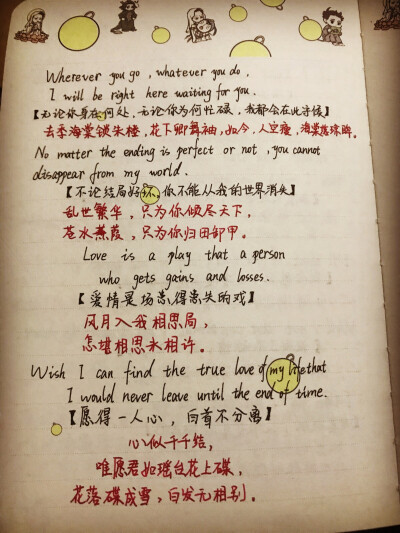 Wherever you go , whatever you do ,
I will be right here waiting for you.
【无论你身在何处，无论你为何忙碌，我都会在此守候】
去季海棠锁朱楼，花下卿舞袖，如今，人空瘦，海棠落珠眸。
No matter the ending is perfect or not , you cannot
disappear from my world.
【不论结局好坏，你不能从我的世界消失】
乱世繁华，只为你倾尽天下，
苍水蒹葭，只为你归田卸甲。
Love is a play that a person
who gets gains and losses.
【爱情是场患得患失的戏】
风月入我相思局，
怎堪相思未相许。
Wish I can find the true love of my life that
I would never leave until the end of time.
【愿得一人心，白首不分离】
心似千千结，
唯愿君如瑶台花上碟，
花落碟成雪，白发无相别。